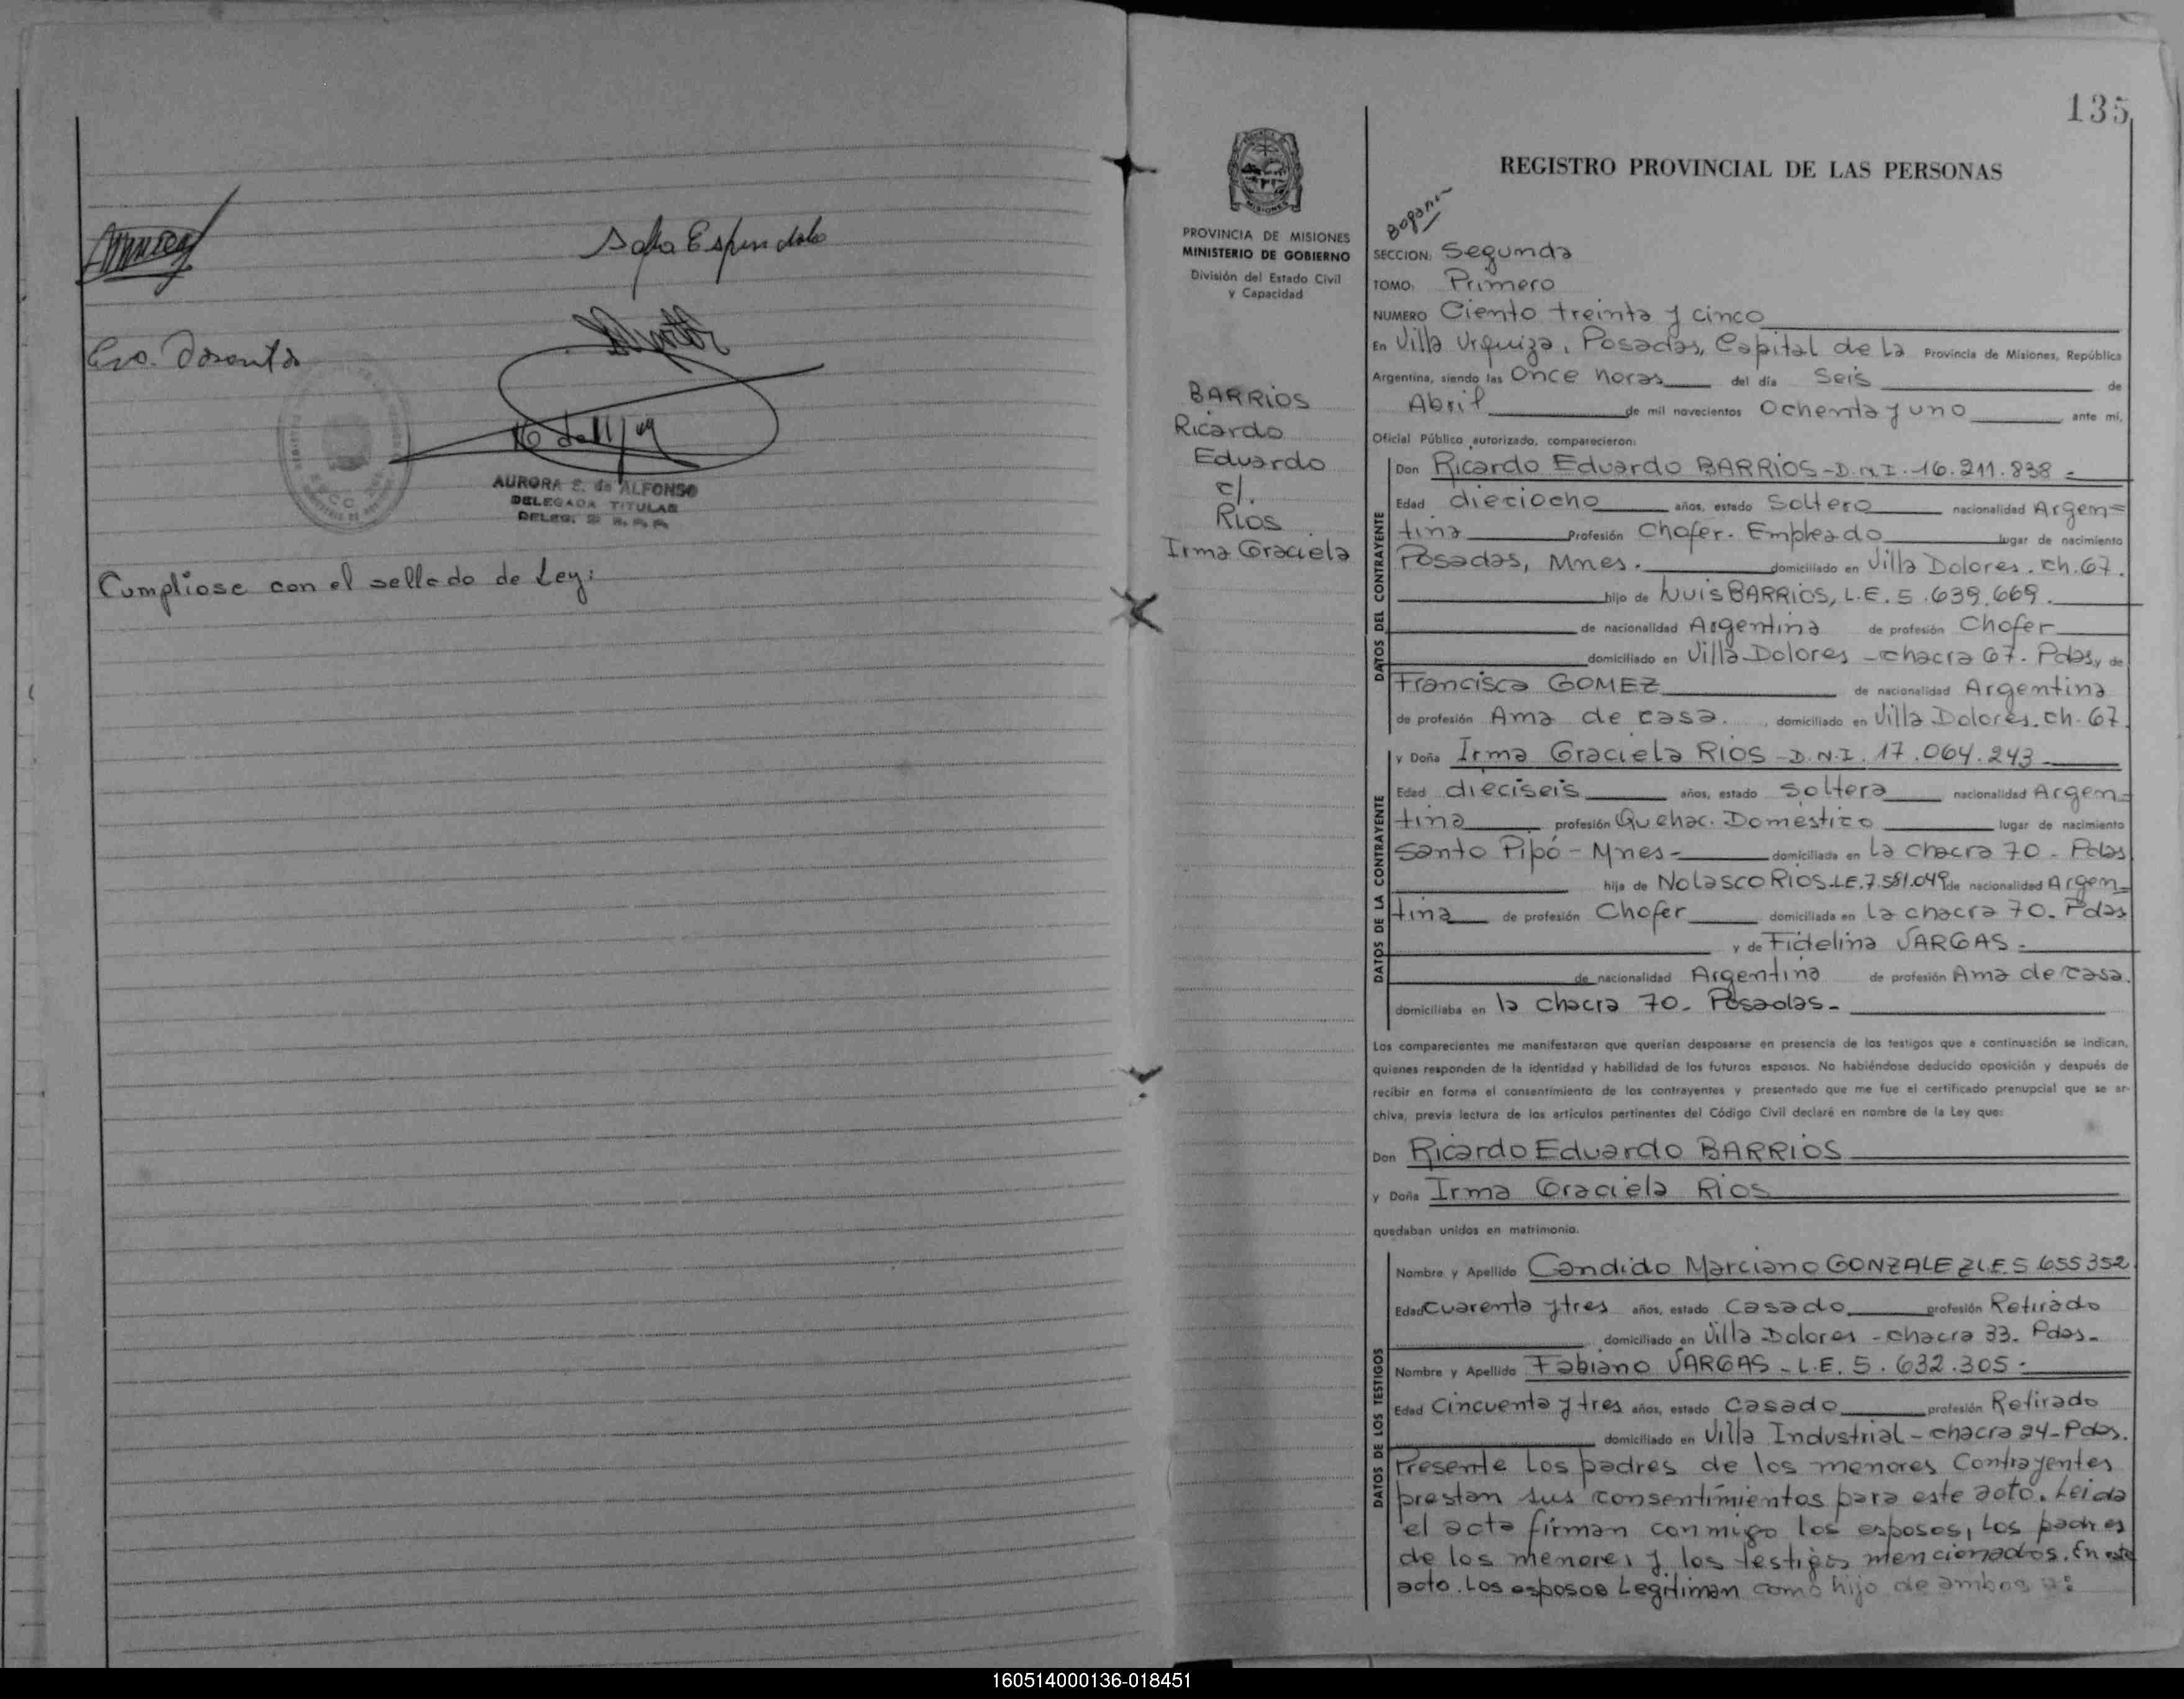 Sofia Espindola
AURORA E. de ALFONSO
DELEGADA TITULAR
Cumpliose con el sellado de Ley:
135
REGISTRO PROVINCIAL DE LAS PERSONAS
MISIONES
PROVINCIA DE MISIONES
MINISTERIO DE GOBIERNO
División del Estado Civil
y Capacidad
BARRIOS
Ricardo
Eduardo
c/.
Rios
Irma Graciela
SECCION: Segunda
TOMO: Primero
NUMERO Ciento treinta y cinco
En Villa Urquiza, Posadas, Capital de la Provincia de Misiones, República
Argentina, siendo las Once horas del día Seis de
Abril de mil novecientos Ochenta y uno ante mí,
Oficial Público autorizado, comparecieron:
DATOS DEL CONTRAYENTE
Don Ricardo Eduardo BARRIOS-D.N.I.-16.211.838=
Edad dieciocho años, estado Soltero nacionalidad Argen=
tina Profesión Chofer. Empleado lugar de nacimiento
Posadas, Mnes. domiciliado en Villa Dolores. ch. 67.
hijo de Luis BARRIOS, L.E. 5.639.669.
de nacionalidad Argentina de profesión Chofer
domiciliado en Villa Dolores - chacra 67. Pdas, y de
Francisca GOMEZ de nacionalidad Argentina
de profesión Ama de casa. domiciliado en Villa Dolores. ch. 67.
DATOS DE LA CONTRAYENTE
y Doña Irma Graciela RIOS - D.N.I. 17.064.243
Edad dieciseis años, estado soltera nacionalidad Argen=
tina profesión Quehac. Domestico lugar de nacimiento
Santo Pipó - Mnes - domiciliada en la chacra 70 - Pdas
hija de Nolasco RIOS-LE.7.581.049 de nacionalidad Argen=
tina de profesión Chofer domiciliada en la chacra 70. Pdas
y de Fidelina VARGAS -
de nacionalidad Argentina de profesión Ama de casa.
domiciliaba en la chacra 70. Posadas-
Los comparecientes me manifestaron que querían desposarse en presencia de los testigos que a continuación se indican,
quienes responden de la identidad y habilidad de los futuros esposos. No habiéndose deducido oposición y después de
recibir en forma el consentimiento de los contrayentes y presentado que me fue el certificado prenupcial que se ar-
chiva, previa lectura de los artículos pertinentes del Código Civil declaré en nombre de la Ley que:
Don Ricardo Eduardo BARRIOS
y Doña Irma Graciela Rios
quedaban unidos en matrimonio.
DATOS DE LOS TESTIGOS
Nombre y Apellido Candido Marciano GONZALEZ L.E. 5 655352
Edad cuarenta y tres años, estado Casado profesión Retirado
domiciliado en Villa Dolores - chacra 33. Pdas-
Nombre y Apellido Fabiano VARGAS - L.E. 5.632.305-
Edad Cincuenta y tres años, estado Casado profesión Retirado
domiciliado en Villa Industrial - chacra 24-Pdas.
Presente los padres de los menores Contrayentes
prestan sus consentimientos para este acto. Leida
el acta firman conmigo los esposos, los padres
de los menores y los testigos mencionados. En este
acto. Los esposos Legitiman como hijo de ambos a:
160514000136-018451